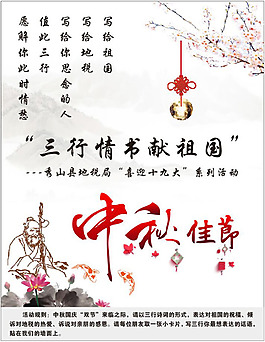 写给祖国
写给地税
写给你思念的人
值此三行
愿解你此时情愁
“三行情书献祖国”
---秀山县地税局“喜迎十九大”系列活动
中秋佳節
活动规则：中秋国庆“双节”来临之际，请以三行诗词的形式，表达对祖国的祝福、倾
诉对地税的热爱、诉说对亲朋的感恩。请每位朋友取一张小卡片，写三行你最想表达的话语，
贴在我们的墙面上。